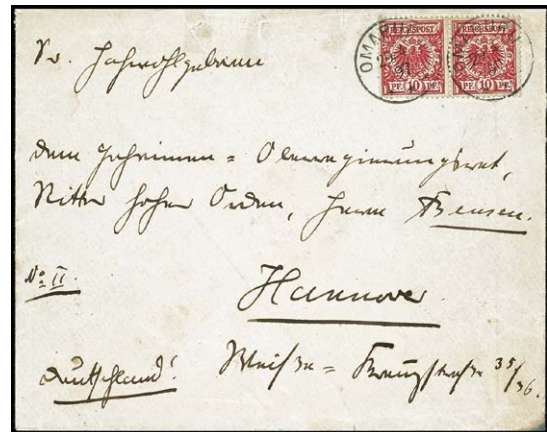 REICHSPOST REICHSPOST
PF. 10 PF. PF. 10 PF.
OMARURU
Sr. Hochwohlgeboren
dem Geheimen = Oberregierungsrat,
Ritter hoher Orden, Herrn Bensen.
No. II.
Hannover
Deutschland! Weiße = Kreuzstraße 35/36.